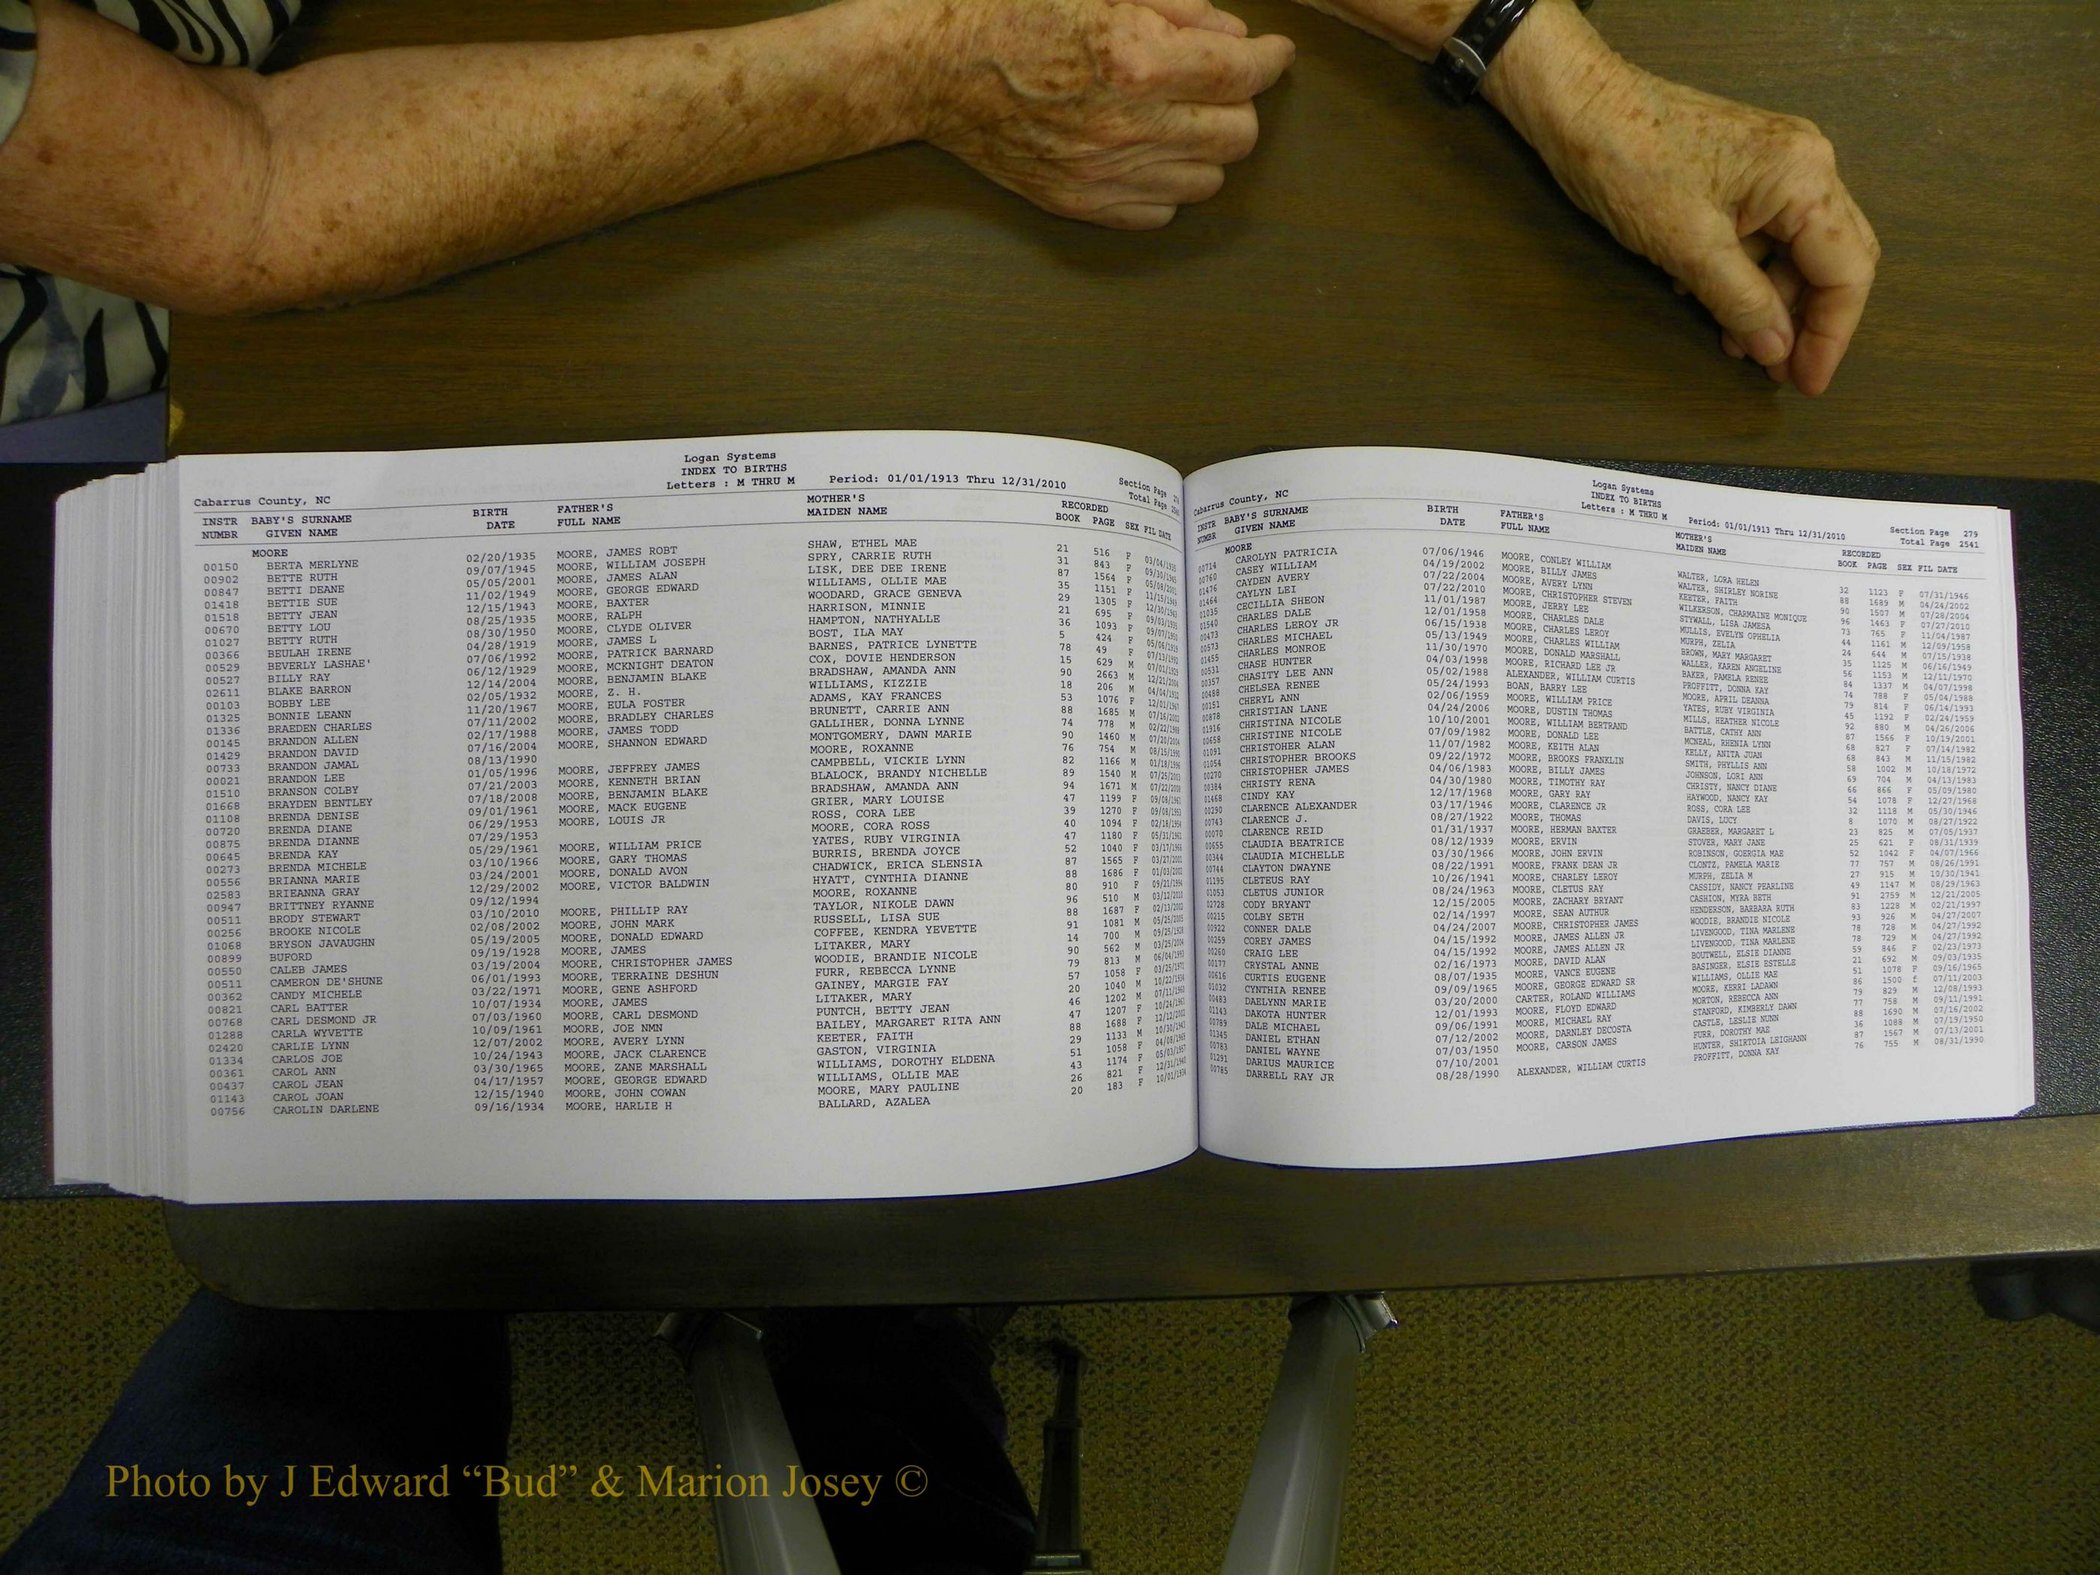 Logan Systems
INDEX TO BIRTHS
Letters : M THRU M Period: 01/01/1913 Thru 12/31/2010
Cabarrus County, NC Section Page Total Page
INSTR NUMBR BABY'S SURNAME GIVEN NAME BIRTH DATE FATHER'S FULL NAME MOTHER'S MAIDEN NAME RECORDED BOOK PAGE SEX FIL DATE
MOORE
00150 BERTA MERLYNE 02/20/1935 MOORE, JAMES ROBT SHAW, ETHEL MAE 21 516 F 03/04/1935
00902 BETTE RUTH 09/07/1945 MOORE, WILLIAM JOSEPH SPRY, CARRIE RUTH 31 843 F
00847 BETTI DEANE 05/05/2001 MOORE, JAMES ALAN LISK, DEE DEE IRENE 87 1564 F
01418 BETTIE SUE 11/02/1949 MOORE, GEORGE EDWARD WILLIAMS, OLLIE MAE 35 1151 F 11/15/1949
01518 BETTY JEAN 12/15/1943 MOORE, BAXTER WOODARD, GRACE GENEVA 29 1305 F
00670 BETTY LOU 08/25/1935 MOORE, RALPH HARRISON, MINNIE 21 695 F
01027 BETTY RUTH 08/30/1950 MOORE, CLYDE OLIVER HAMPTON, NATHYALLE 36 1093 F
00366 BEULAH IRENE 04/28/1919 MOORE, JAMES L BOST, ILA MAY 5 424 F
00529 BEVERLY LASHAE' 07/06/1992 MOORE, PATRICK BARNARD BARNES, PATRICE LYNETTE 78 49 F
00527 BILLY RAY 06/12/1929 MOORE, MCKNIGHT DEATON COX, DOVIE HENDERSON 15 629 M
02611 BLAKE BARRON 12/14/2004 MOORE, BENJAMIN BLAKE BRADSHAW, AMANDA ANN 90 2663 M
00103 BOBBY LEE 02/05/1932 MOORE, Z. H. WILLIAMS, KIZZIE 18 206 M
01325 BONNIE LEANN 11/20/1967 MOORE, EULA FOSTER ADAMS, KAY FRANCES 53 1076 F
01336 BRAEDEN CHARLES 07/11/2002 MOORE, BRADLEY CHARLES BRUNETT, CARRIE ANN 88 1685 M
00145 BRANDON ALLEN 02/17/1988 MOORE, JAMES TODD GALLIHER, DONNA LYNNE 74 778 M
01429 BRANDON DAVID 07/16/2004 MOORE, SHANNON EDWARD MONTGOMERY, DAWN MARIE 90 1460 M
00733 BRANDON JAMAL 08/13/1990 MOORE, ROXANNE 76 754 M
00021 BRANDON LEE 01/05/1996 MOORE, JEFFREY JAMES CAMPBELL, VICKIE LYNN 82 1166 M
01510 BRANSON COLBY 07/21/2003 MOORE, KENNETH BRIAN BLALOCK, BRANDY NICHELLE 89 1540 M
01668 BRAYDEN BENTLEY 07/18/2008 MOORE, BENJAMIN BLAKE BRADSHAW, AMANDA ANN 94 1671 M
01108 BRENDA DENISE 09/01/1961 MOORE, MACK EUGENE GRIER, MARY LOUISE 47 1199 F
00720 BRENDA DIANE 06/29/1953 MOORE, LOUIS JR ROSS, CORA LEE 39 1270 F
00875 BRENDA DIANNE 07/29/1953 MOORE, CORA ROSS 40 1094 F
00645 BRENDA KAY 05/29/1961 MOORE, WILLIAM PRICE YATES, RUBY VIRGINIA 47 1180 F
00273 BRENDA MICHELE 03/10/1966 MOORE, GARY THOMAS BURRIS, BRENDA JOYCE 52 1040 F
00556 BRIANNA MARIE 03/24/2001 MOORE, DONALD AVON CHADWICK, ERICA SLENSIA 87 1565 F
02583 BRIEANNA GRAY 12/29/2002 MOORE, VICTOR BALDWIN HYATT, CYNTHIA DIANNE 88 1686 F
00947 BRITTNEY RYANNE 09/12/1994 MOORE, ROXANNE 80 910 F
00511 BRODY STEWART 03/10/2010 MOORE, PHILLIP RAY TAYLOR, NIKOLE DAWN 96 510 M
00256 BROOKE NICOLE 02/08/2002 MOORE, JOHN MARK RUSSELL, LISA SUE 88 1687 F
01068 BRYSON JAVAUGHN 05/19/2005 MOORE, DONALD EDWARD COFFEE, KENDRA YEVETTE 91 1081 M
00899 BUFORD 09/19/1928 MOORE, JAMES LITAKER, MARY 14 700 M
00550 CALEB JAMES 03/19/2004 MOORE, CHRISTOPHER JAMES WOODIE, BRANDIE NICOLE 90 562 M
00511 CAMERON DE'SHUNE 06/01/1993 MOORE, TERRAINE DESHUN FURR, REBECCA LYNNE 79 813 M
00362 CANDY MICHELE 03/22/1971 MOORE, GENE ASHFORD GAINEY, MARGIE FAY 57 1058 F
00821 CARL BATTER 10/07/1934 MOORE, JAMES LITAKER, MARY 20 1040 M
00768 CARL DESMOND JR 07/03/1960 MOORE, CARL DESMOND PUNTCH, BETTY JEAN 46 1202 M
01288 CARLA WYVETTE 10/09/1961 MOORE, JOE NMN BAILEY, MARGARET RITA ANN 47 1207 F
02420 CARLIE LYNN 12/07/2002 MOORE, AVERY LYNN KEETER, FAITH 88 1688 F
01334 CARLOS JOE 10/24/1943 MOORE, JACK CLARENCE GASTON, VIRGINIA 29 1133 M
00361 CAROL ANN 03/30/1965 MOORE, ZANE MARSHALL WILLIAMS, DOROTHY ELDENA 51 1058 F
00437 CAROL JEAN 04/17/1957 MOORE, GEORGE EDWARD WILLIAMS, OLLIE MAE 43 1174 F
01143 CAROL JOAN 12/15/1940 MOORE, JOHN COWAN MOORE, MARY PAULINE 26 821 F
00756 CAROLIN DARLENE 09/16/1934 MOORE, HARLIE H BALLARD, AZALEA 20 183 F 10/01/1934
Logan Systems
INDEX TO BIRTHS
Letters : M THRU M Period: 01/01/1913 Thru 12/31/2010
Cabarrus County, NC Section Page 279 Total Page 2541
INSTR NUMBR BABY'S SURNAME GIVEN NAME BIRTH DATE FATHER'S FULL NAME MOTHER'S MAIDEN NAME RECORDED BOOK PAGE SEX FIL DATE
MOORE
00714 CAROLYN PATRICIA 07/06/1946 MOORE, CONLEY WILLIAM WALTER, LORA HELEN 32 1123 F 07/31/1946
00760 CASEY WILLIAM 04/19/2002 MOORE, BILLY JAMES WALTER, SHIRLEY NORINE 88 1689 M 04/24/2002
01476 CAYDEN AVERY 07/22/2004 MOORE, AVERY LYNN KEETER, FAITH 90 1507 M 07/28/2004
01464 CAYLYN LEI 07/22/2010 MOORE, CHRISTOPHER STEVEN WILKERSON, CHARMAINE MONIQUE 96 1463 F 07/27/2010
01035 CECILLIA SHEON 11/01/1987 MOORE, JERRY LEE STYWALL, LISA JAMESA 73 765 F 11/04/1987
01540 CHARLES DALE 12/01/1958 MOORE, CHARLES DALE MULLIS, EVELYN OPHELIA 44 1161 M 12/09/1958
00473 CHARLES LEROY JR 06/15/1938 MOORE, CHARLES LEROY MURPH, ZELIA 24 644 M 07/15/1938
01455 CHARLES MICHAEL 05/13/1949 MOORE, CHARLES WILLIAM BROWN, MARY MARGARET 35 1125 M 06/16/1949
00531 CHARLES MONROE 11/30/1970 MOORE, DONALD MARSHALL WALLER, KAREN ANGELINE 56 1153 M 12/11/1970
00357 CHASE HUNTER 04/03/1998 MOORE, RICHARD LEE JR BAKER, PAMELA RENEE 84 1337 M 04/07/1998
00488 CHASITY LEE ANN 05/02/1988 ALEXANDER, WILLIAM CURTIS PROFFITT, DONNA KAY 74 788 F 05/04/1988
00151 CHELSEA RENEE 05/24/1993 BOAN, BARRY LEE MOORE, APRIL DEANNA 79 814 F 06/14/1993
00878 CHERYL ANN 02/06/1959 MOORE, WILLIAM PRICE YATES, RUBY VIRGINIA 45 1192 F 02/24/1959
01916 CHRISTIAN LANE 04/24/2006 MOORE, DUSTIN THOMAS MILLS, HEATHER NICOLE 92 880 M 04/26/2006
00658 CHRISTINA NICOLE 10/10/2001 MOORE, WILLIAM BERTRAND BATTLE, CATHY ANN 87 1566 F 10/19/2001
01091 CHRISTINE NICOLE 07/09/1982 MOORE, DONALD LEE MCNEAL, RHENIA LYNN 68 827 F 07/14/1982
01054 CHRISTOHER ALAN 11/07/1982 MOORE, KEITH ALAN KELLY, ANITA JUAN 68 843 M 11/15/1982
00270 CHRISTOPHER BROOKS 09/22/1972 MOORE, BROOKS FRANKLIN SMITH, PHYLLIS ANN 58 1002 M 10/18/1972
00384 CHRISTOPHER JAMES 04/06/1983 MOORE, BILLY JAMES JOHNSON, LORI ANN 69 704 M 04/13/1983
01468 CHRISTY RENA 04/30/1980 MOORE, TIMOTHY RAY CHRISTY, NANCY DIANE 66 866 F 05/09/1980
00290 CINDY KAY 12/17/1968 MOORE, GARY RAY HAYWOOD, NANCY KAY 54 1078 F 12/27/1968
00743 CLARENCE ALEXANDER 03/17/1946 MOORE, CLARENCE JR ROSS, CORA LEE 32 1118 M 05/30/1946
00070 CLARENCE J. 08/27/1922 MOORE, THOMAS DAVIS, LUCY 8 1070 M 08/27/1922
00655 CLARENCE REID 01/31/1937 MOORE, HERMAN BAXTER GRAEBER, MARGARET L 23 825 M 07/05/1937
00344 CLAUDIA BEATRICE 08/12/1939 MOORE, ERVIN STOVER, MARY JANE 25 621 F 08/31/1939
00744 CLAUDIA MICHELLE 03/30/1966 MOORE, JOHN ERVIN ROBINSON, GOERGIA MAE 52 1042 F 04/07/1966
01195 CLAYTON DWAYNE 08/22/1991 MOORE, FRANK DEAN JR CLONTZ, PAMELA MARIE 77 757 M 08/26/1991
01053 CLETEUS RAY 10/26/1941 MOORE, CHARLEY LEROY MURPH, ZELIA M 27 915 M 10/30/1941
02728 CLETUS JUNIOR 08/24/1963 MOORE, CLETUS RAY CASSIDY, NANCY PEARLINE 49 1147 M 08/29/1963
00215 CODY BRYANT 12/15/2005 MOORE, ZACHARY BRYANT CASHION, MYRA BETH 91 2759 M 12/21/2005
00922 COLBY SETH 02/14/1997 MOORE, SEAN AUTHUR HENDERSON, BARBARA RUTH 83 1228 M 02/21/1997
00259 CONNER DALE 04/24/2007 MOORE, CHRISTOPHER JAMES WOODIE, BRANDIE NICOLE 93 926 M 04/27/2007
00260 COREY JAMES 04/15/1992 MOORE, JAMES ALLEN JR LIVENGOOD, TINA MARLENE 78 728 M 04/27/1992
00177 CRAIG LEE 04/15/1992 MOORE, JAMES ALLEN JR LIVENGOOD, TINA MARLENE 78 729 M 04/27/1992
00616 CRYSTAL ANNE 02/16/1973 MOORE, DAVID ALAN BOUTWELL, ELSIE DIANNE 59 846 F 02/23/1973
01032 CURTIS EUGENE 08/07/1935 MOORE, VANCE EUGENE BASINGER, ELSIE ESTELLE 21 692 M 09/03/1935
00483 CYNTHIA RENEE 09/09/1965 MOORE, GEORGE EDWARD SR WILLIAMS, OLLIE MAE 51 1078 F 09/16/1965
01143 DAELYNN MARIE 03/20/2000 CARTER, ROLAND WILLIAMS MOORE, KERRI LADAWN 86 1500 f 07/11/2003
00789 DAKOTA HUNTER 12/01/1993 MOORE, FLOYD EDWARD MORTON, REBECCA ANN 79 829 M 12/08/1993
01345 DALE MICHAEL 09/06/1991 MOORE, MICHAEL RAY STANFORD, KIMBERLY DAWN 77 758 M 09/11/1991
00783 DANIEL ETHAN 07/12/2002 MOORE, DARNLEY DECOSTA CASTLE, LESLIE NUNN 88 1690 M 07/16/2002
01291 DANIEL WAYNE 07/03/1950 MOORE, CARSON JAMES FURR, DOROTHY MAE 36 1088 M 07/19/1950
00785 DARIUS MAURICE 07/10/2001 HUNTER, SHIRTOIA LEIGHANN 87 1567 M 07/13/2001
DARRELL RAY JR 08/28/1990 ALEXANDER, WILLIAM CURTIS PROFFITT, DONNA KAY 76 755 M 08/31/1990
Photo by J Edward “Bud” & Marion Josey ©